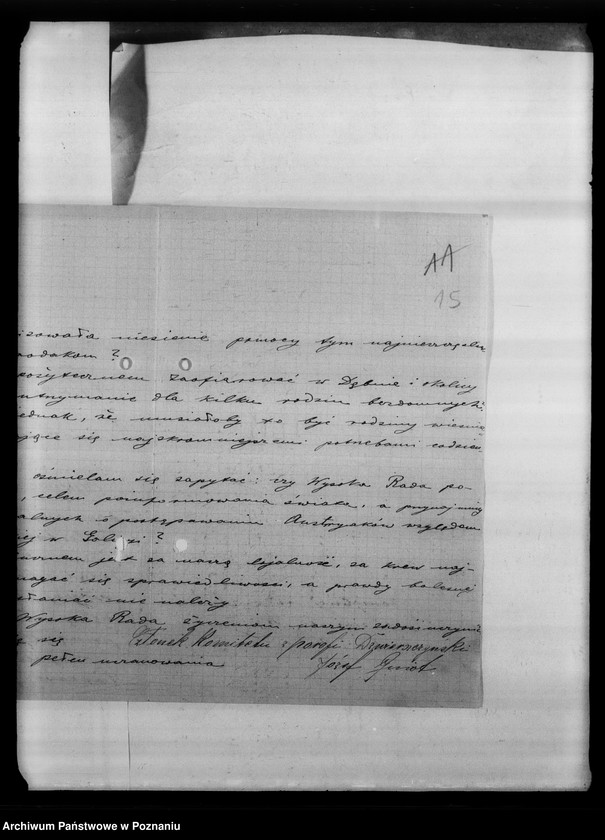 AA
15
izowała niesienie pomocy tym najnieszczęśl
rodakom?
pożytecznem zaofiarować w Dębnie i okolicy
utrzymanie dla kilku rodzin bezdomnych;
ednak, że musiałyby to być rodziny
jące się najskromniejszemi potrzebami codzien
ośmielam się zapytać: czy Wysoka Rada po-
, celem poinformowania świata, a przynajmniej
o postępowaniu Austryaków względem
ej w Galicyi?
jest za naszą lojalność, za krew naj-
magać się sprawiedliwości, a prawdy bolesnej
nie należy.
Wysoka Rada życzeniom naszym zadość uczyni
ę się Członek Komitetu z parafii
pełen uszanowania Józef
Archiwum Państwowe w Poznaniu